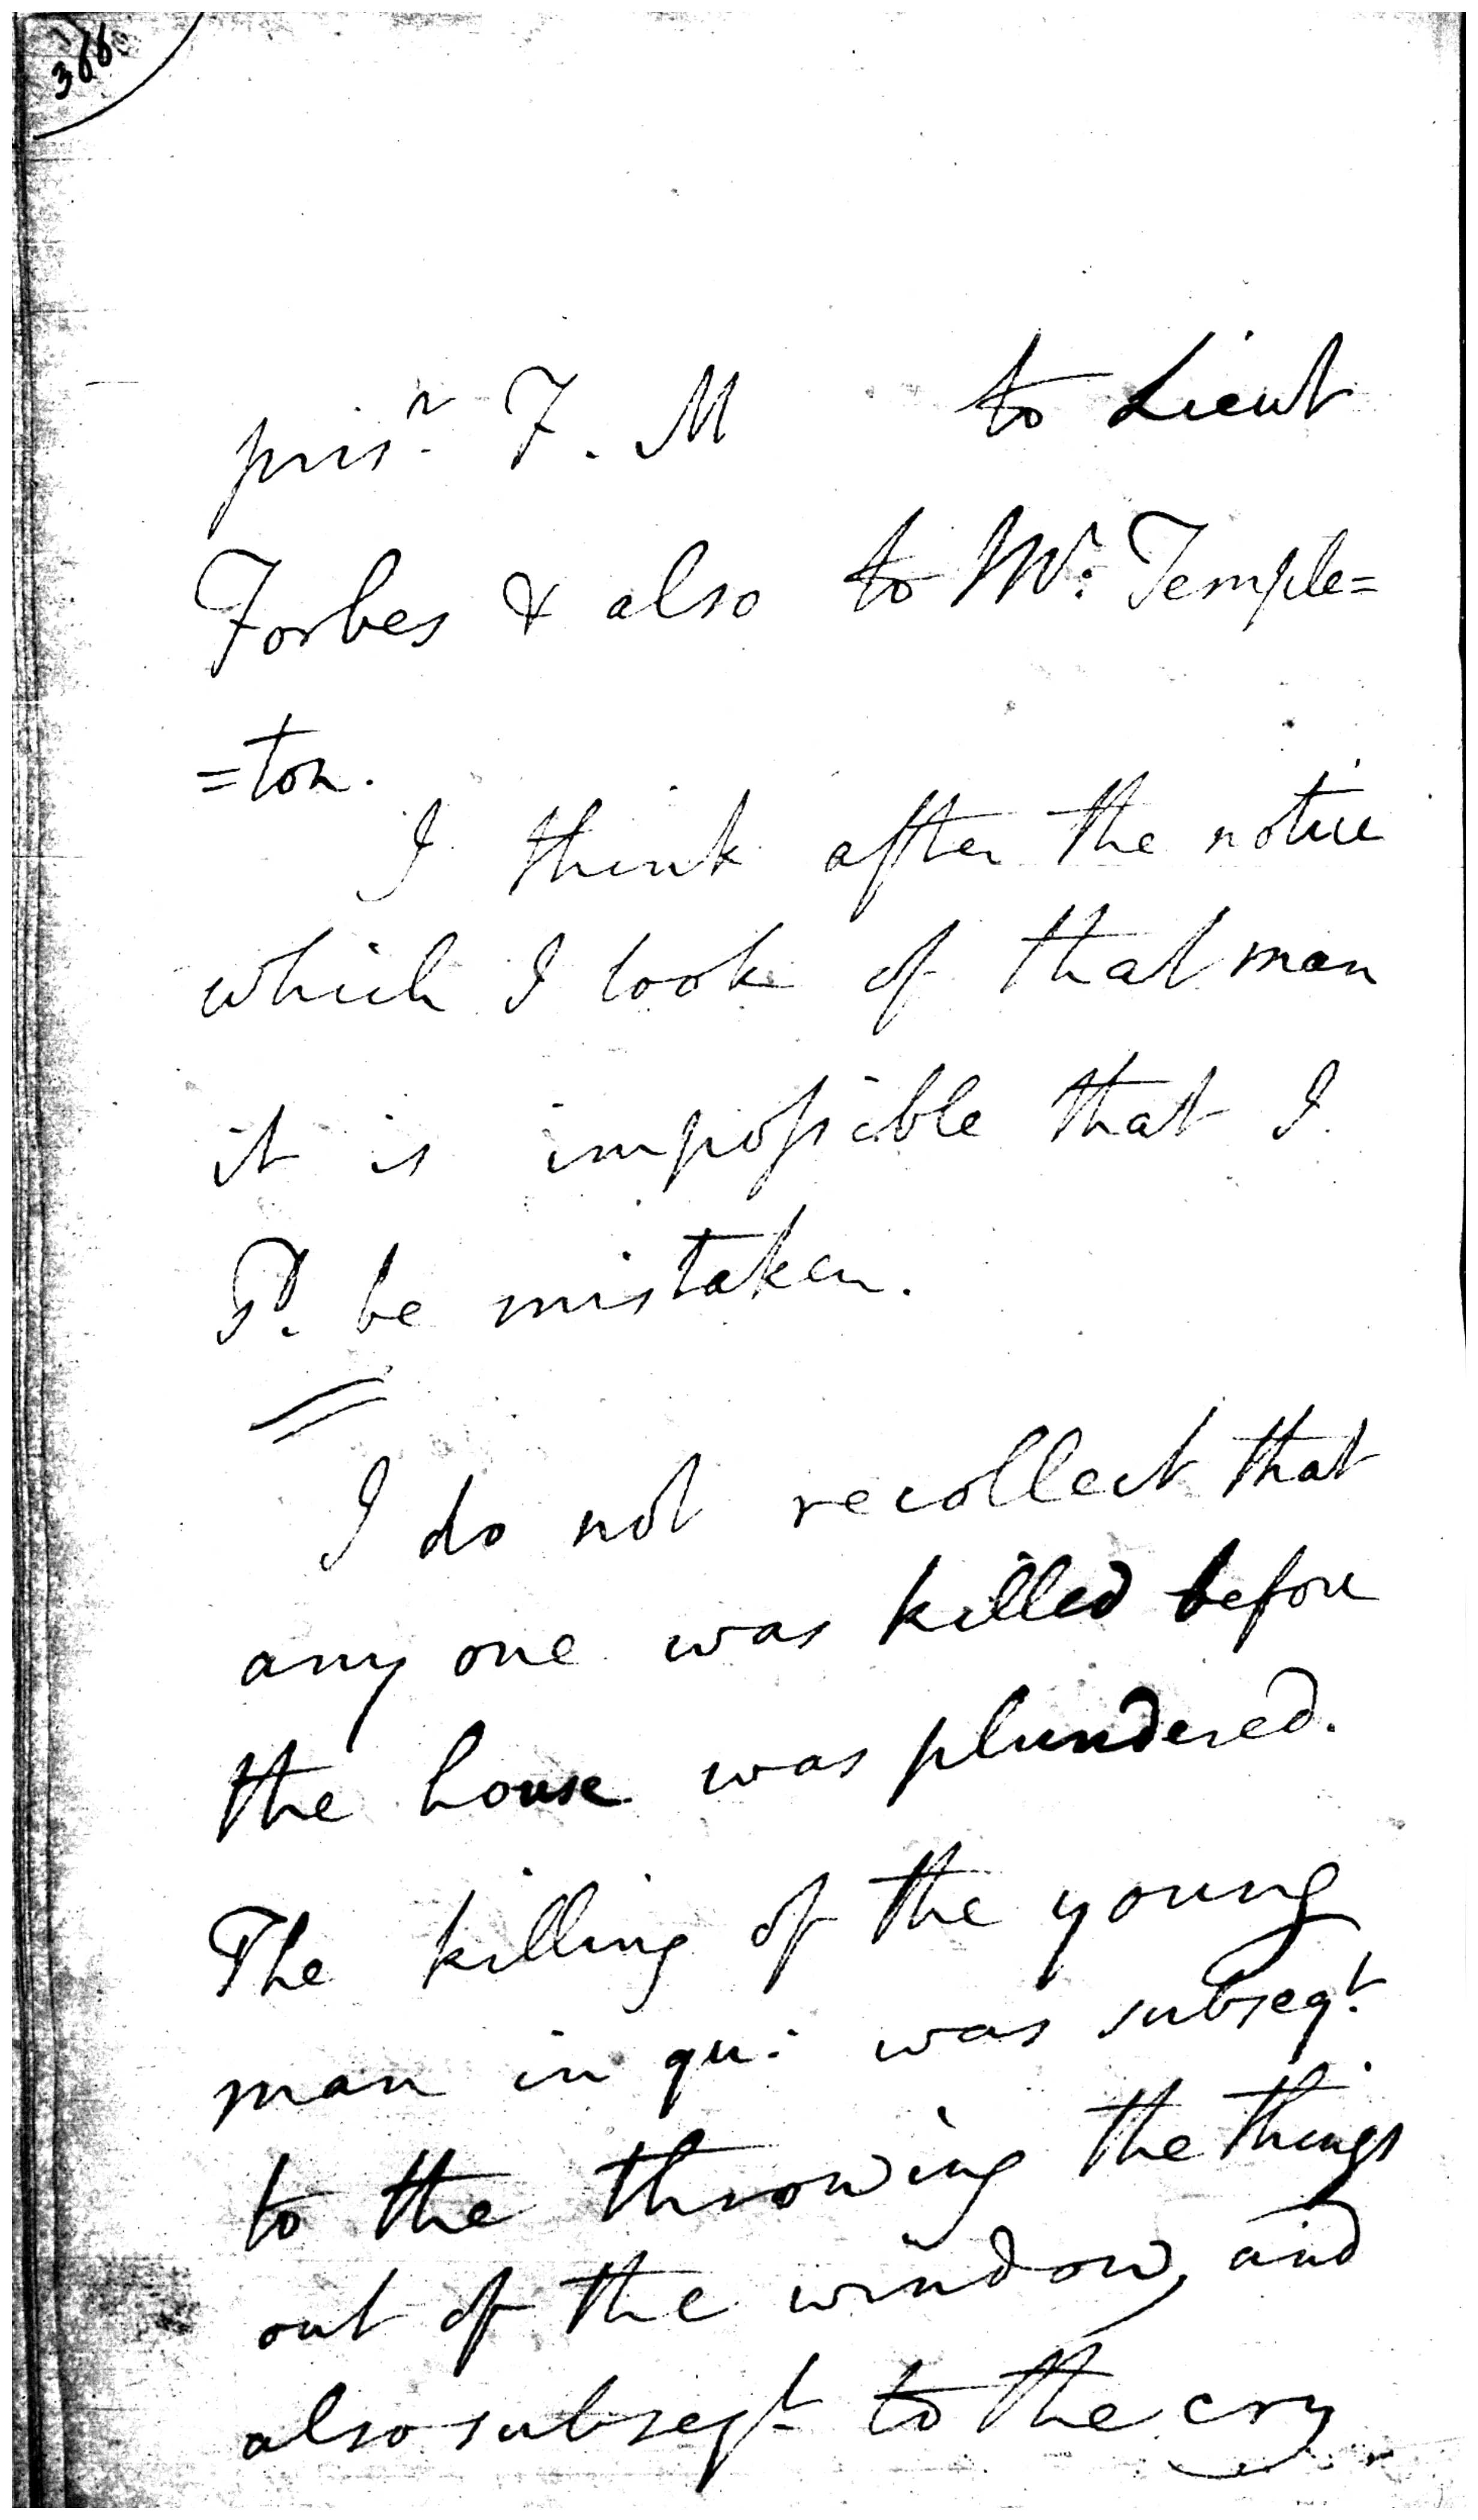 prisr. F. M to Lieut
Forbes & also to Mr. Temple=
=ton.
I think after the notice
which I took of that man
it is impossible that I
Sd. be mistaken.
I do not recollect that
any one was killed before
the house was plundered.
The killing of the young
man in qu: was subseqt.
to the throwing the things
out of the window, and
also subseqt to the cry